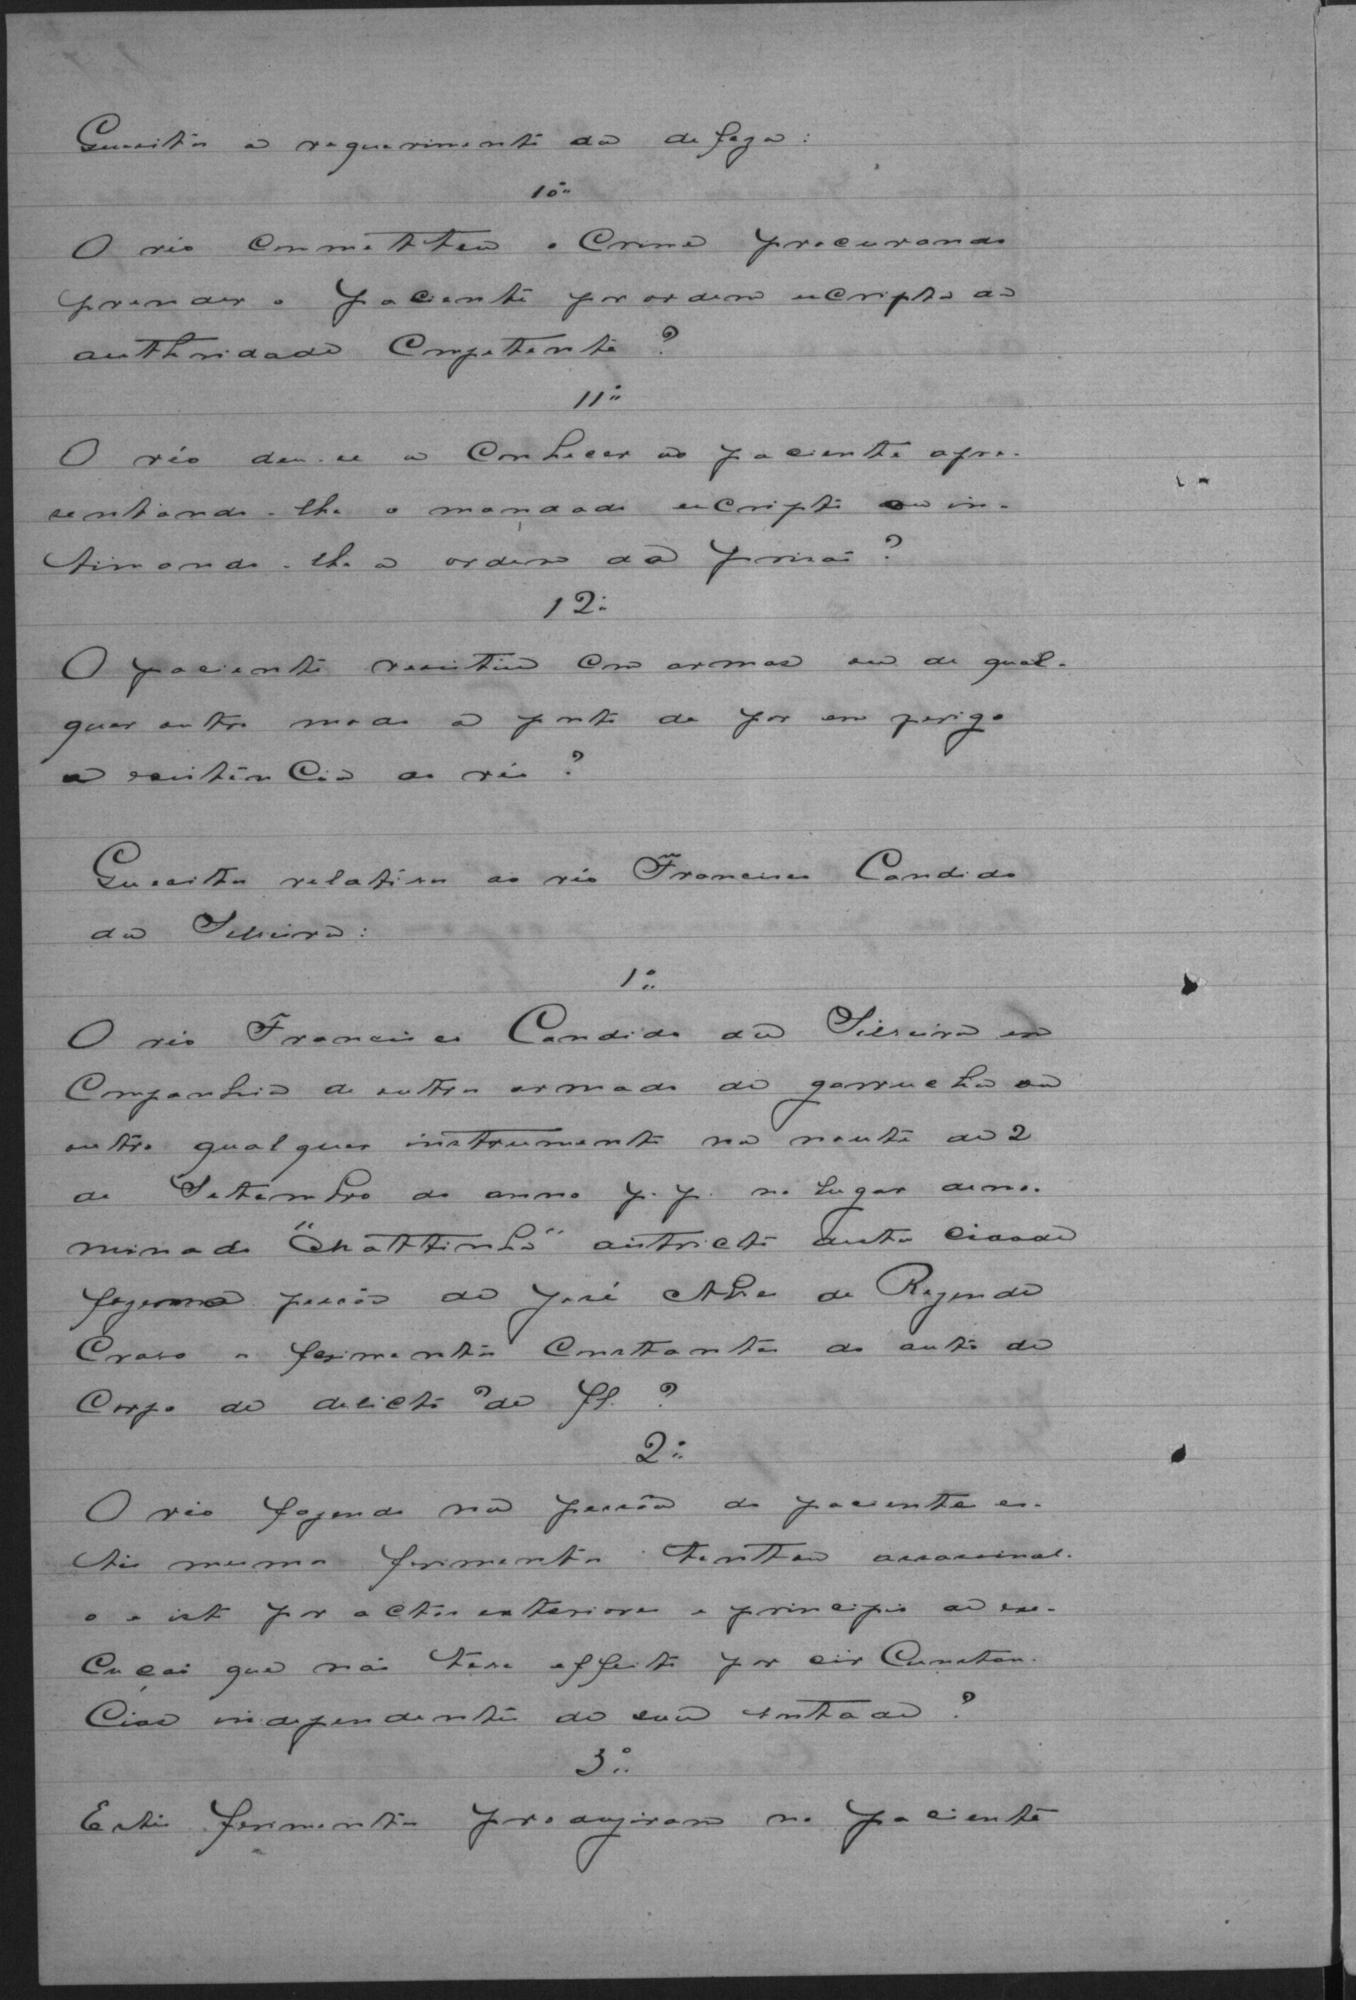 Quesitos a requerimento da defeza:
10º
O réo commetteu o crime procurando
prender o paciente por ordem escripta da
authoridade competente?
11º
O réo deu-se a conhecer ao paciente apre-
sentando-lhe o mandado escripto ou in-
timando-lhe a ordem da prisão?
12º
O paciente resistiu com armas ou de qual-
quer outro modo a ponto de por em perigo
a existencia do réo?
Quesitos relativos ao réo Francisco Candido
da Silveira:
1º
O réo Francisco Candido da Silveira em
companhia de outros armado de garrucha ou
outro qualquer instrumento na noute de 2
de Setembro do anno p.p. no lugar deno-
minado "Mattinho" districto desta cidade
fez na pessôa de José Alves de Rezende
Cravo os ferimentos constantes do auto de
corpo de delicto de fl. ?
2º
O réo fazendo na pessôa do paciente es-
tes mesmos ferimentos tentou assassinal-
o e isto por actos exteriores e principio de exe-
cução que não teve effeito por circunstan-
cias independentes de sua vontade?
3º
Estes ferimentos produziram no paciente